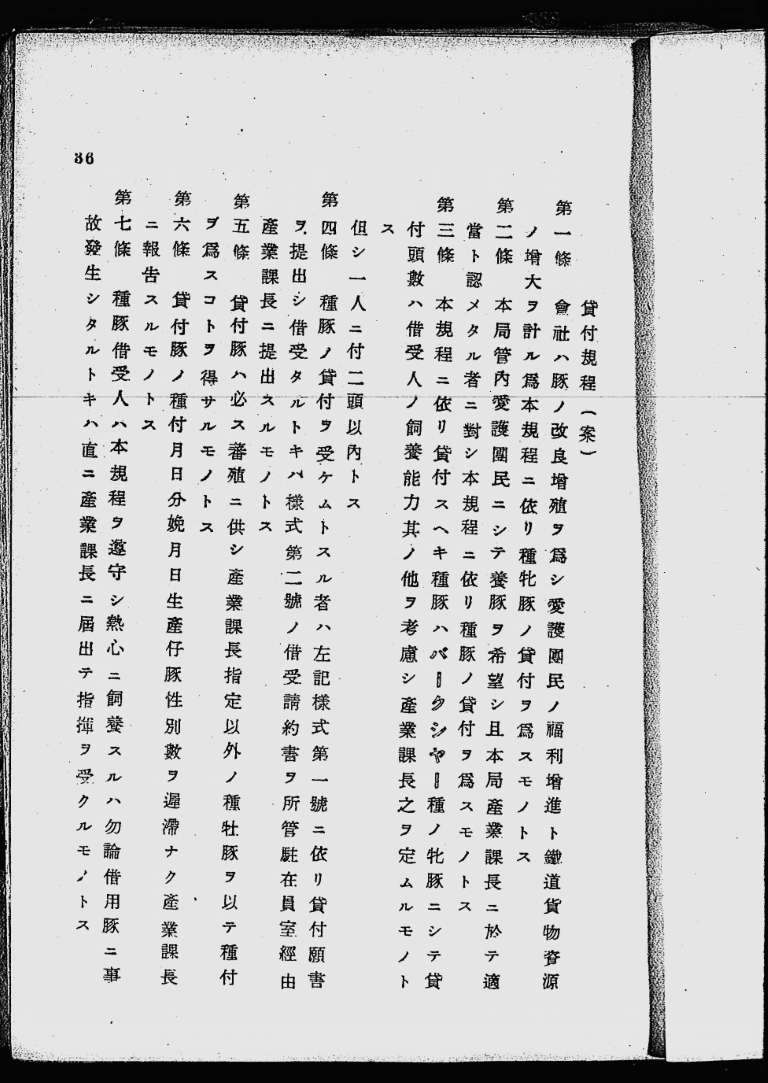 貸付規程（案）
第一條　會社ハ豚ノ改良增殖ヲ爲シ愛護團民ノ福利增進ト鐵道貨物資源
ノ增大ヲ計ル爲本規程ニ依リ種牝豚ノ貸付ヲ爲スモノトス
第二條　本局管內愛護團民ニシテ養豚ヲ希望シ且本局產業課長ニ於テ適
當ト認メタル者ニ對シ本規程ニ依リ種豚ノ貸付ヲ爲スモノトス
第三條　本規程ニ依リ貸付スヘキ種豚ハバークシヤー種ノ牝豚ニシテ貸
付頭數ハ借受人ノ飼養能力其ノ他ヲ考慮シ產業課長之ヲ定ムルモノト
ス
但シ一人ニ付二頭以內トス
第四條　種豚ノ貸付ヲ受ケムトスル者ハ左記樣式第一號ニ依リ貸付願書
ヲ提出シ借受タルトキハ樣式第二號ノ借受請約書ヲ所管駐在員室經由
產業課長ニ提出スルモノトス
第五條　貸付豚ハ必ス蕃殖ニ供シ產業課長指定以外ノ種牡豚ヲ以テ種付
ヲ爲スコトヲ得サルモノトス
第六條　貸付豚ノ種付月日分娩月日生產仔豚性別數ヲ遲滯ナク產業課長
ニ報告スルモノトス
第七條　種豚借受人ハ本規程ヲ遵守シ熱心ニ飼養スルハ勿論借用豚ニ事
故發生シタルトキハ直ニ產業課長ニ屆出テ指揮ヲ受クルモノトス
36